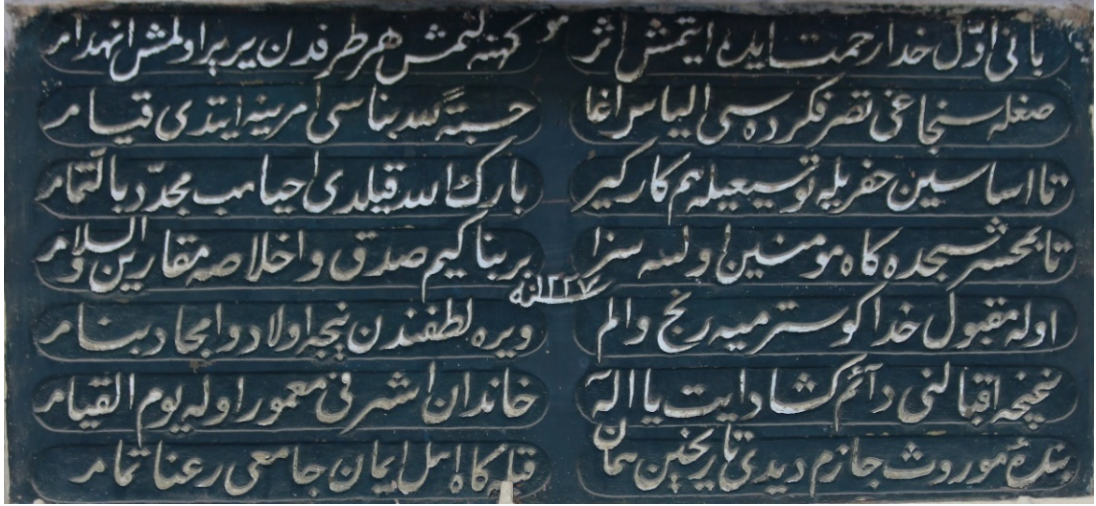 بانی اوّل خدا رحمت ایده ایتمش اثر
کهنه لنمش هر طرفدن یر یر اولمش انهدام
صغله سنجاغی تصرفکرده سی الیاس اغا
حسبةً لله بناسی امرینه ایتدی قیام
تا اساسین حفریله توسیعیله هم کارکیر
بارك الله قیلدی احیا هب مجدّد بالتمام
تا بمحشر سجده کاه مومنین اولسه سزا
بر بنا کیم صدق و اخلاصه مقارین والسلام
سنه ١٢٢٧
اوله مقبول خدا کوسترمیه رنج والم
ویره لطفندن نیجه اولاد و امجاد بنام
نیجه اقبالنی دآئم کشاد ایت یا اله
خاندان اشرفی معمور اوله یوم القیام
بندهٔ موروث جازم دیدی تاریخین تمان
قبله کاه اهل ایمان جامعی رعنا تمام